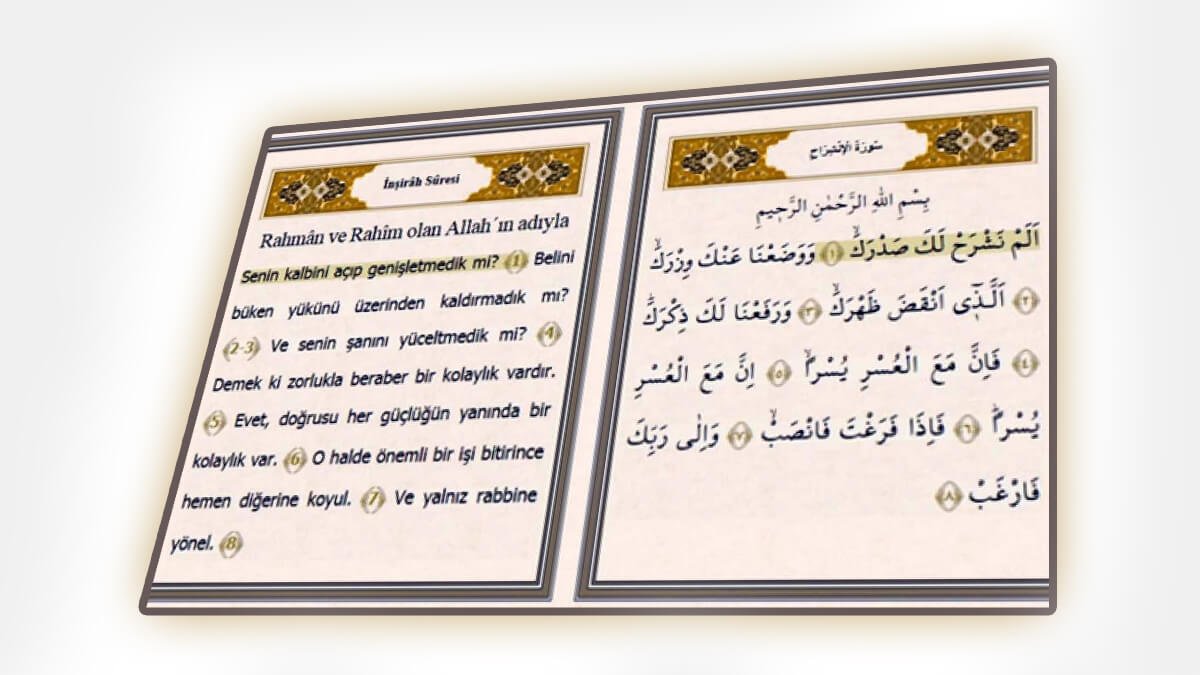 İnşirâh Sûresi
Rahmân ve Rahîm olan Allah´ın adıyla
Senin kalbini açıp genişletmedik mi? 1 Belini
büken yükünü üzerinden kaldırmadık mı?
2-3 Ve senin şanını yüceltmedik mi? 4
Demek ki zorlukla beraber bir kolaylık vardır.
5 Evet, doğrusu her güçlüğün yanında bir
kolaylık var. 6 O halde önemli bir işi bitirince
hemen diğerine koyul. 7 Ve yalnız rabbine
yönel. 8
سُورَةُ الْاِنْشِرَاحِ
بِسْمِ اللهِ الرَّحْمٰنِ الرَّح۪يمِ
اَلَمْ نَشْرَحْ لَكَ صَدْرَكَۙ ﴿١﴾ وَوَضَعْنَا عَنْكَ وِزْرَكَۙ
﴿٢﴾ اَلَّـذ۪ٓى اَنْقَضَ ظَهْرَكَۙ ﴿٣﴾ وَرَفَعْنَا لَكَ ذِكْرَكَۜ
﴿٤﴾ فَاِنَّ مَعَ الْعُسْرِ يُسْراًۙ ﴿٥﴾ اِنَّ مَعَ الْعُسْرِ
يُسْراًۜ ﴿٦﴾ فَاِذَا فَرَغْتَ فَانْصَبْۙ ﴿٧﴾ وَاِلٰى رَبِّكَ
فَارْغَبْ ﴿٨﴾